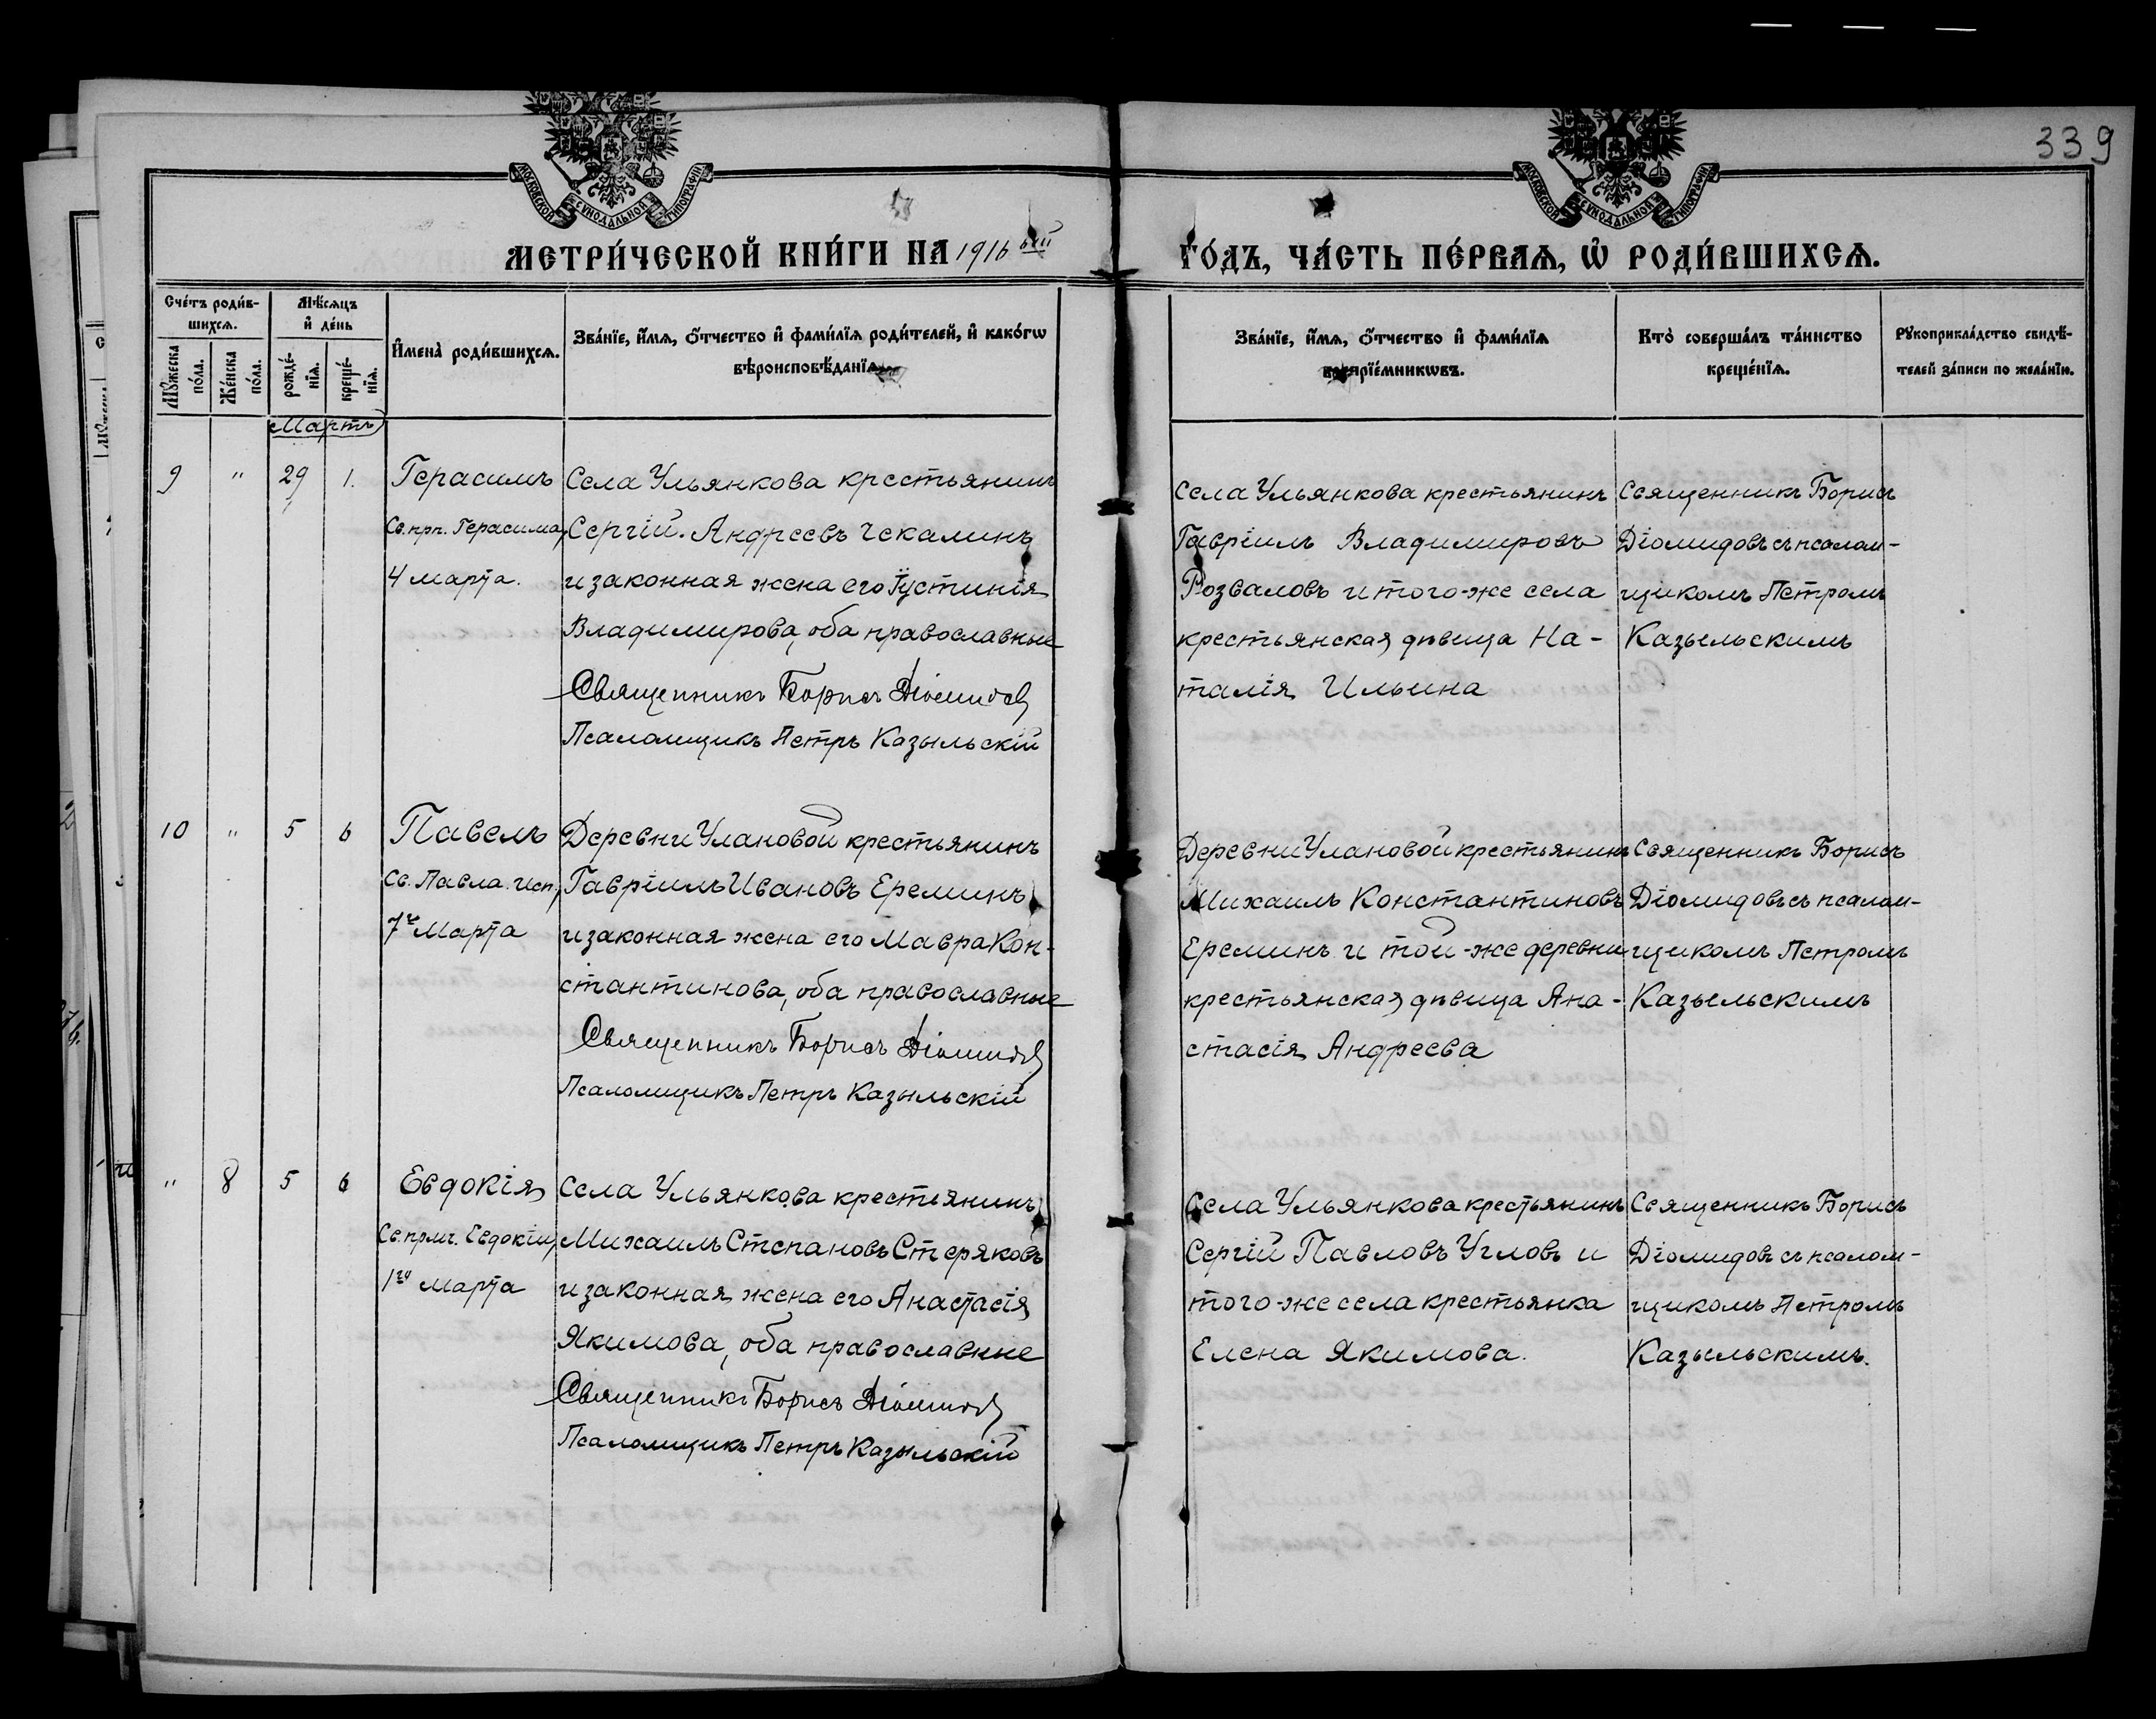 339
МОСКОВСКОЙ СѴНОДАЛЬНОЙ ТИПОГРАФІИ
МОСКОВСКОЙ СѴНОДАЛЬНОЙ ТИПОГРАФІИ
МЕТРИ́ЧЕСКОЙ КНИ́ГИ НА 1916 ый
ГО́ДЪ, ЧА́СТЬ ПЕ́РВАѦ, Ѽ РОДИ́ВШИХСѦ.
Сче́тъ роди́в-
шихсѧ.
Мѣ́сѧцъ
и҆ де́нь
Мꙋ́жеска по́ла.
Же́нска по́ла.
рожде́-нїѧ.
креще́-нїѧ.
И҆мена̀ роди́вшихсѧ.
Зва́нїе, и҆́мѧ, ѻ҆́тчество и҆ фами́лїѧ роди́телей, и҆ како́гѡ
вѣроисповѣ́данїѧ.
Зва́нїе, и҆́мѧ, ѻ҆́тчество и҆ фами́лїѧ
воспрїе́мникѡвъ.
Кто̀ соверша́лъ та́инство
креще́нїѧ.
Рꙋкоприкла́дство свидѣ́-
телей за́писи по жела́нїю.
Мартъ
9 " 29 1. Герасимъ
Св. прп. Герасима,
4 марта.
Села Ульянкова крестьянинъ
Сергій. Андреевъ Чекалинъ
и законная жена его Іустинія
Владимирова, оба православные
Священникъ Борисъ Діомидов
Псаломщикъ Петръ Казыльскій
Села Ульянкова крестьянинъ
Гавріилъ Владимировъ
Розваловъ и того-же села
крестьянская дѣвица На-
талія Ильина
Священникъ Борисъ
Діомидовъ съ псалом-
щикомъ Петромъ
Казыльскимъ
10 " 5 6 Павелъ
Св. Павла. Исп,
7го Марта
Деревни Улановой крестьянинъ
Гавріилъ Ивановъ Ереминъ
и законная жена его Мавра Кон-
стантинова, оба православные
Священникъ Борисъ Діомидов
Псаломщикъ Петръ Казыльскій
Деревни Улановой крестьянинъ
Михаилъ Константиновъ
Ереминъ и той-же деревни
крестьянская дѣвица Ана-
стасія Андреева
Священникъ Борисъ
Діомидовъ съ псалом-
щикомъ Петромъ
Казыльскимъ
" 8 5 6 Евдокія
Св. прмч. Евдокіи,
1го марта
Села Ульянкова крестьянинъ
Михаилъ Степановъ Стеряковъ
и законная жена его Анастасія
Якимова, оба православные
Священникъ Борисъ Діомидов
Псаломщикъ Петръ Казыльскій
Села Ульянкова крестьянинъ
Сергій Павловъ Угловъ и
того-же села крестьянка
Елена Якимова.
Священникъ Борисъ
Діомидовъ съ псалом-
щикомъ Петромъ
Казыльскимъ.